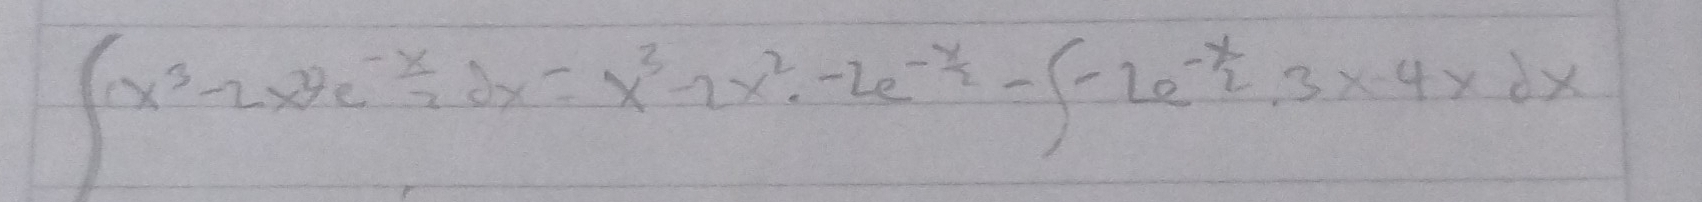 ∫(x³-2x²)e^{-x/2} dx = x³-2x².-2e^{-x/2} - ∫-2e^{-x/2}.3x-4x dx